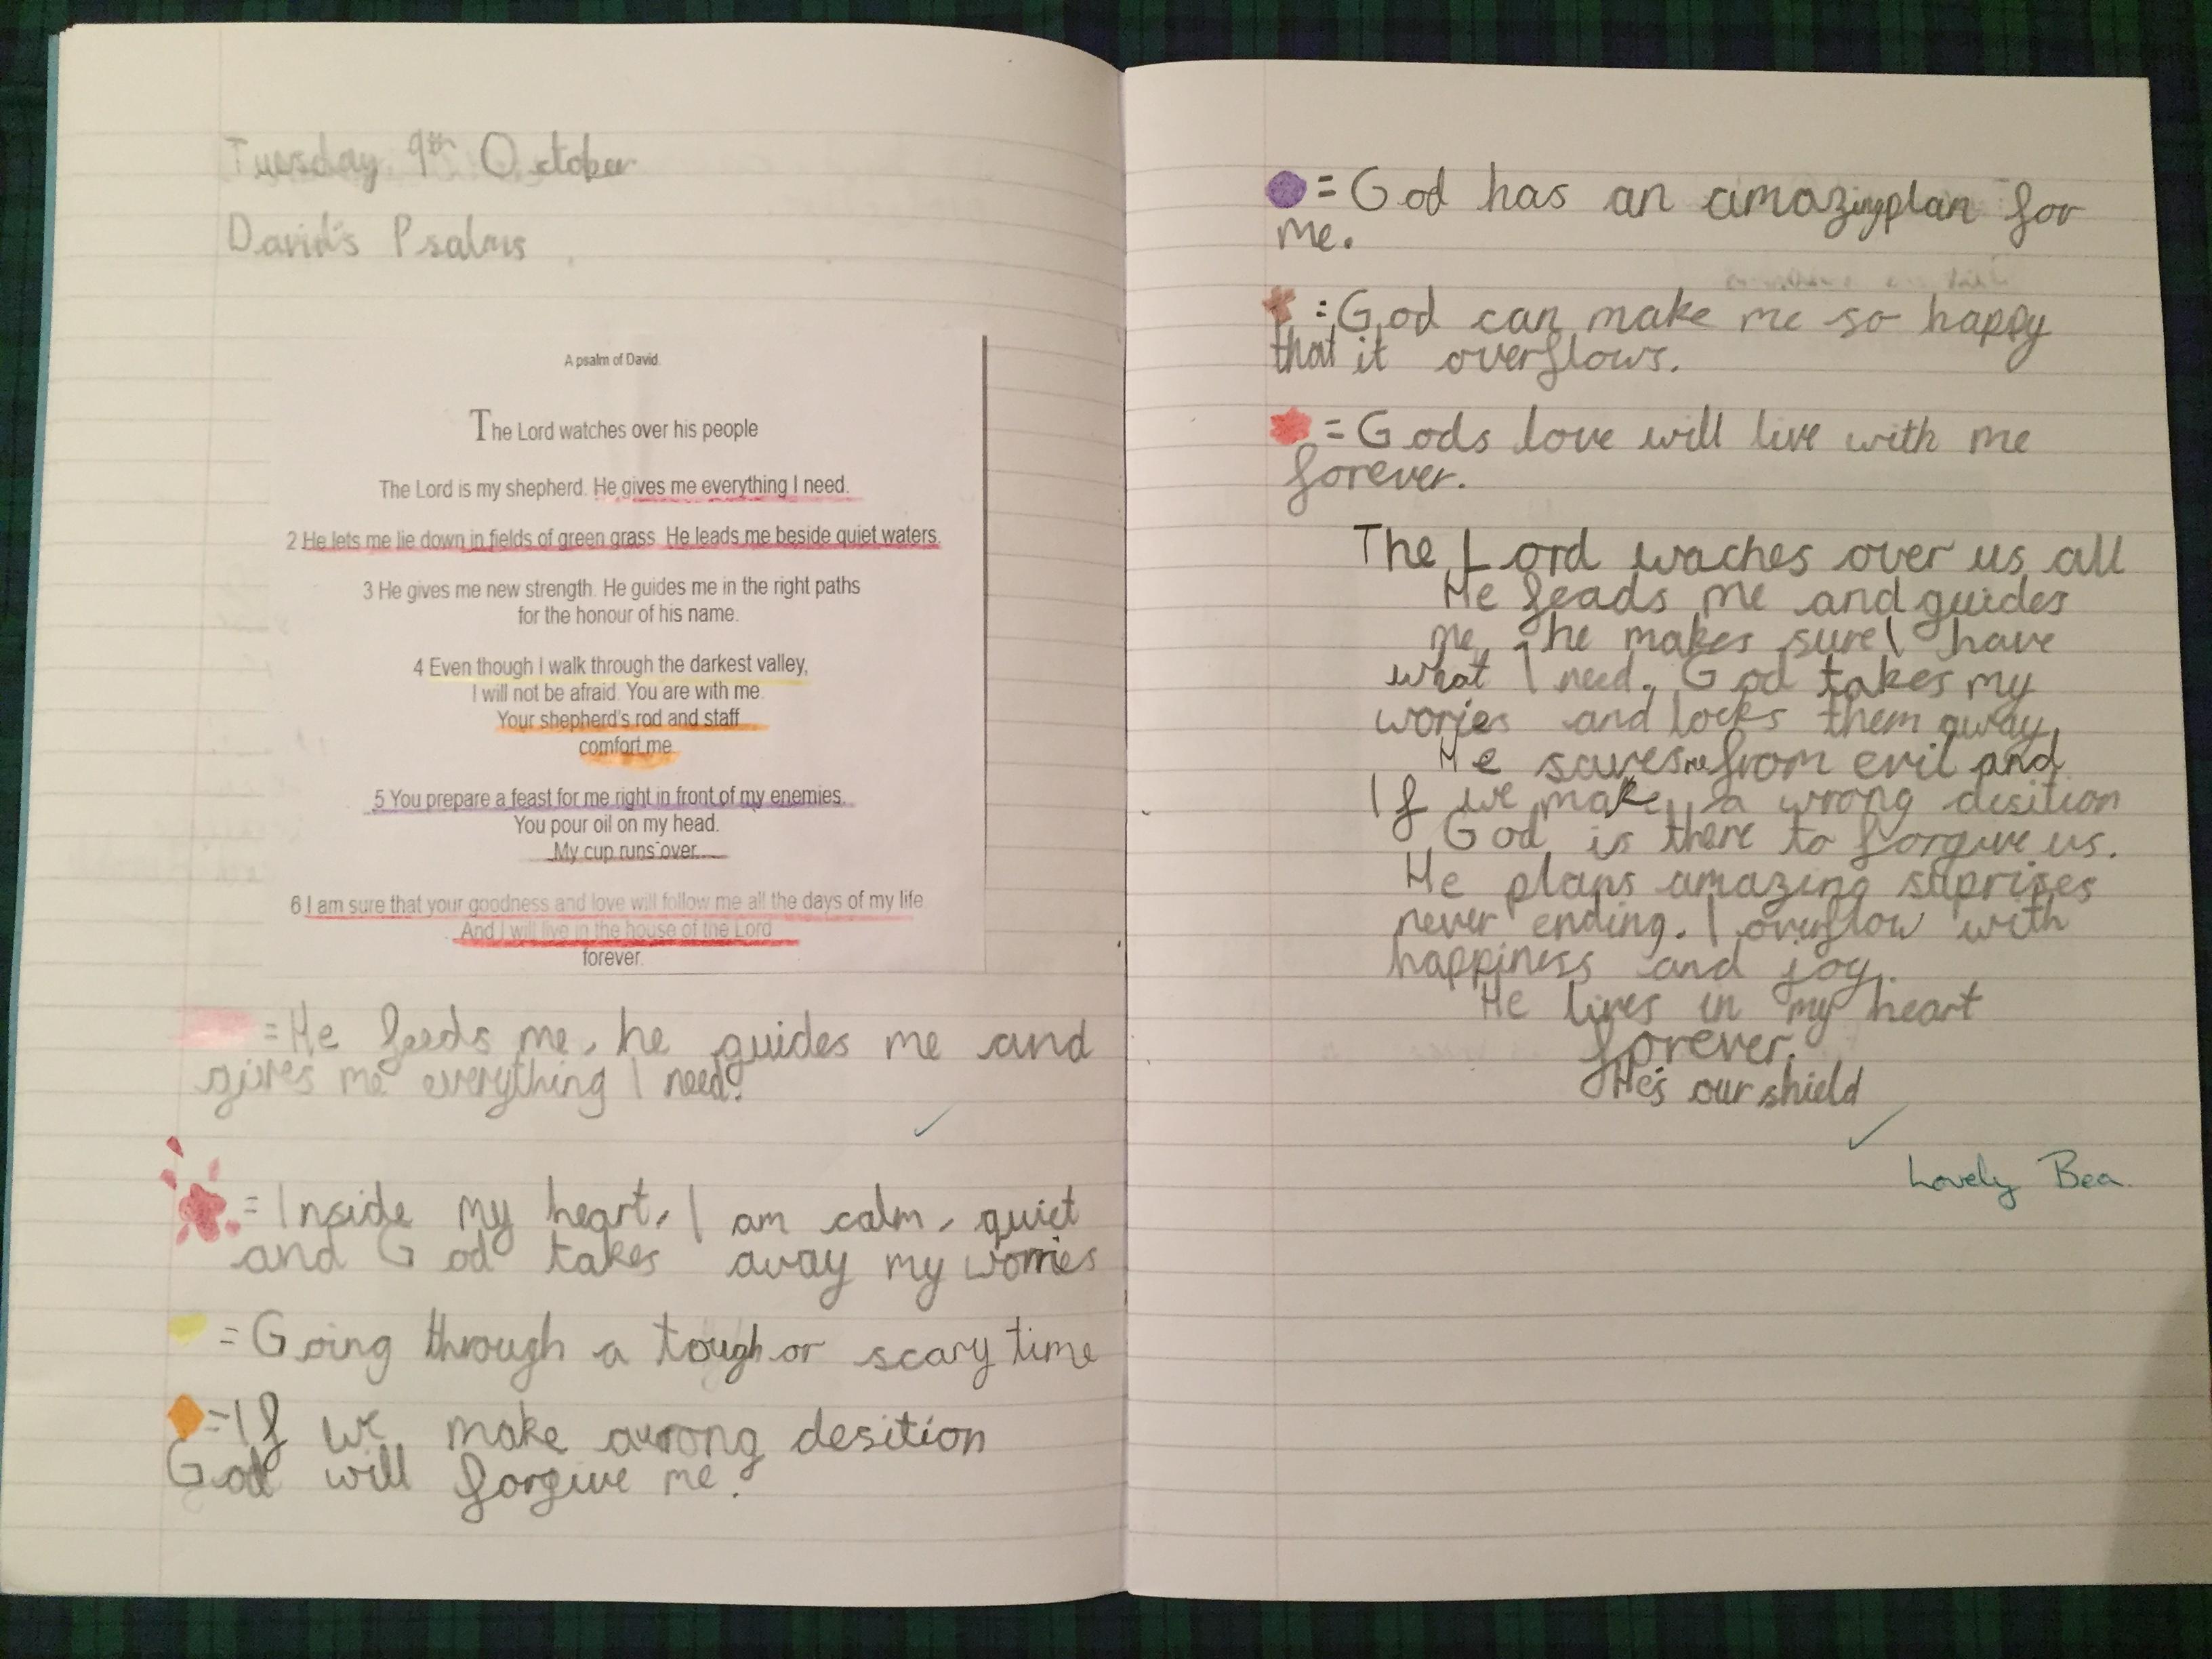 Tuesday 9th October
David's Psalms
A psalm of David.
The Lord watches over his people
The Lord is my shepherd. He gives me everything I need.
2 He lets me lie down in fields of green grass. He leads me beside quiet waters.
3 He gives me new strength. He guides me in the right paths
for the honour of his name.
4 Even though I walk through the darkest valley,
I will not be afraid. You are with me.
Your shepherd's rod and staff
comfort me.
5 You prepare a feast for me right in front of my enemies.
You pour oil on my head.
My cup runs over.
6 I am sure that your goodness and love will follow me all the days of my life.
And I will live in the house of the Lord
forever.
= He feeds me, he guides me and
gives me everything I need.
= Inside my heart, I am calm, quiet
and God takes away my worries
= Going through a tough or scary time
= If we make a wrong desition
God will forgive me.
= God has an amazing plan for
me.
= God can make me so happy
that it overflows.
= Gods love will live with me
forever.
The Lord waches over us all
He feads me and guides
me, he makes sure I have
what I need. God takes my
worries and locks them away,
He saves me from evil and
If we make a wrong desition
God is there to forgive us.
He plans amazing suprises
never ending. I overflow with
happiness and joy.
He lives in my heart
forever.
He's our shield
Lovely Bea.